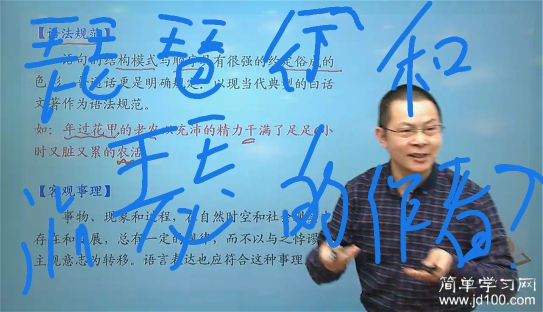 琵琶 和
的作者?
【语法规范】
语句的结构模式与顺 有很强的约定俗成的
色 普通话更是明确规定：以现当代典型的白话
文著作为语法规范。
如：年过花甲的老农以充沛的精力干满了足足 小
时又脏又累的农活
【客观事理】
事物、现象和过程，在自然时空和社会
存在和发展，总有一定的规律，而不以与之悖谬
主观意志为转移。语言表达也应符合这种事理
简单学习网
www.jd100.com